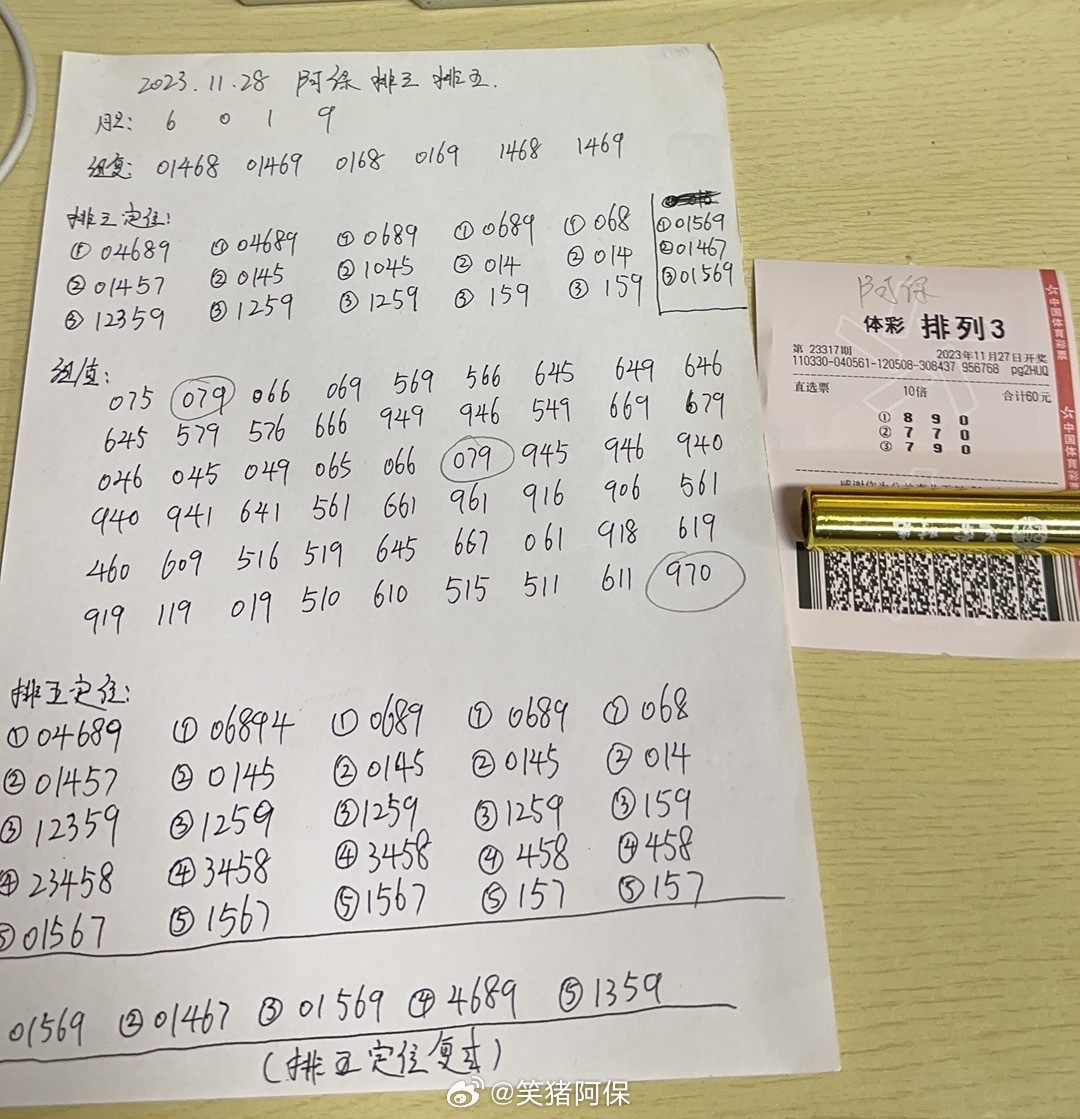 2023.11.28 阿保 排三 排五.
胆: 6 0 1 9
组复: 01468 01469 0168 0169 1468 1469
排三定位:
① 04689 ① 04689 ① 0689 ① 0689 ① 068
② 01457 ② 0145 ② 1045 ② 014 ② 014
③ 12359 ③ 1259 ③ 1259 ③ 159 ③ 159
① 01569
② 01467
③ 01569
组直:
075 079 066 069 569 566 645 649 646
645 579 576 666 949 946 549 669 679
046 045 049 065 066 079 945 946 940
940 941 641 561 661 961 916 906 561
460 609 516 519 645 667 061 918 619
919 119 019 510 610 515 511 611 970
排五定位:
① 04689 ① 06894 ① 0689 ① 0689 ① 068
② 01457 ② 0145 ② 0145 ② 0145 ② 014
③ 12359 ③ 1259 ③ 1259 ③ 1259 ③ 159
④ 23458 ④ 3458 ④ 3458 ④ 458 ④ 458
⑤ 01567 ⑤ 1567 ⑤ 1567 ⑤ 157 ⑤ 157
01569 ② 01467 ③ 01569 ④ 4689 ⑤ 1359
(排五定位复式)
阿保
体彩 排列3
第 23317期 2023年11月27日开奖
110330-040561-120508-308437 956768 pg2HUQ
直选票 10倍 合计60元
① 8 9 0
② 7 7 0
③ 7 9 0
中国体育彩票
中国体育彩票
@笑猪阿保